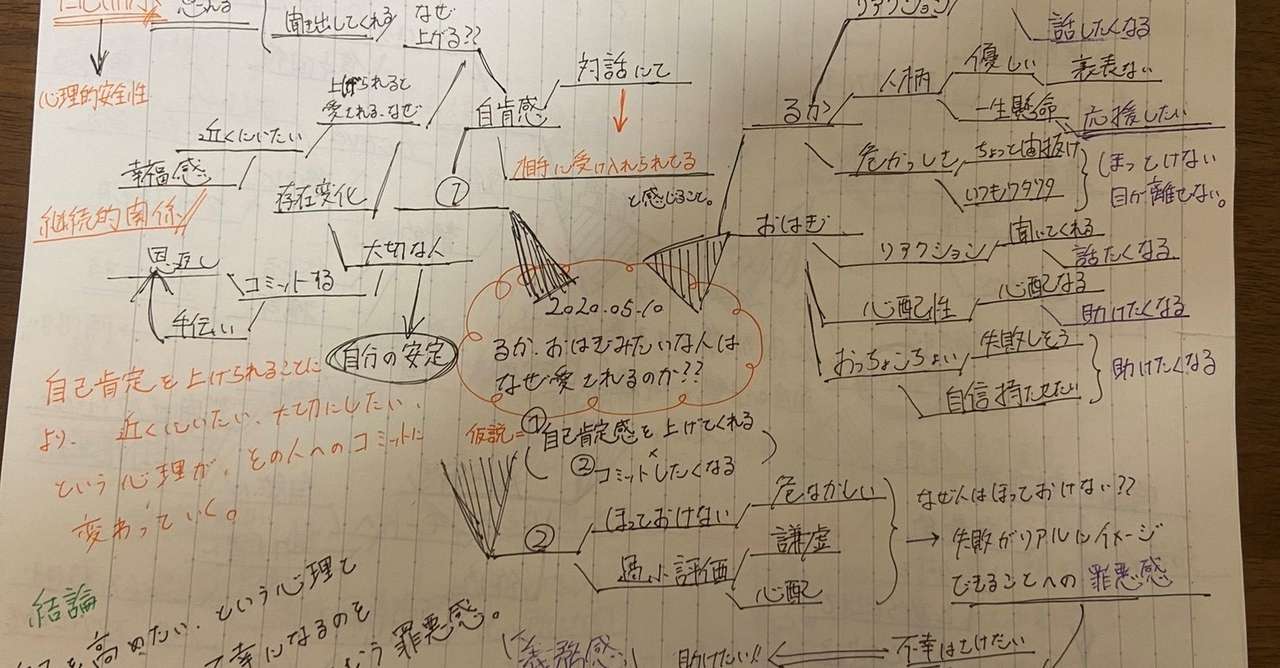 心理的安全性
聞き出してくれる
なぜ
上がる??
上げられると
愛される、なぜ
近くにいたい
幸福感
継続的関係
存在変化
大切な人
コミットする
恩返し
手伝い
自分の安定
自肯感
①
対話にて
相手に受け入れられてる
と感じること。
自己肯定を上げられることに
より、近くにいたい、大切にしたい、
という心理が、その人へのコミットに
変わっていく。
2020.05.10
るか、おはぎみたいな人は
なぜ愛されるのか??
仮説=①自己肯定感を上げてくれる
×
②コミットしたくなる
リアクション
話したくなる
るか
人柄
優しい
裏表ない
一生懸命
応援したい
危なっかしさ
ちょっと間抜け
いつもワタワタ
ほっとけない
目が離せない。
おはぎ
リアクション
聞いてくれる
話たくなる
心配性
心配なる
助けたくなる
おっちょこちょい
失敗しそう
自信持たせたい
助けたくなる
②
ほっておけない
危なかしい
過小評価
謙虚
心配
なぜ人はほっておけない??
→失敗がリアルにイメージ
できることへの罪悪感
不幸はさけたい
助けたい!!
義務感
結論
を高めたい、という心理と
幸になるのを
いう罪悪感。